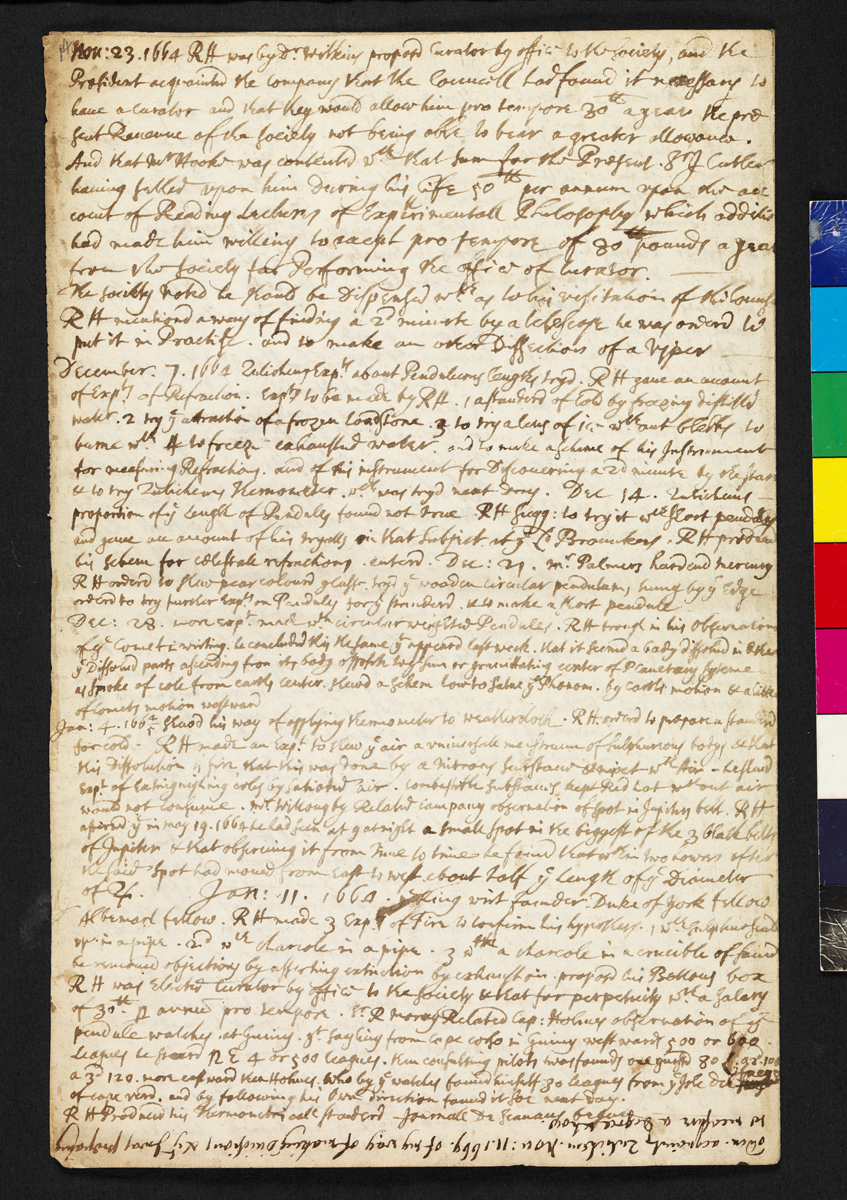 Nov: 23. 1664 RH was by Dr Wilkins propos'd Curator by office to the Society, and the
President acquainted the company that the Councill had found it necessary to
have a Curator and that they would allow him pro tempore 30th a year the pre
sent Revenue of the Society not being able to bear a greater allowance.
And that Mr Hooke was contented wth that sum for the Present. Sr J Cutler
having setled upon him during his life 50th per annum upon the ac
count of Reading Lectures of Experimentall Philosophy which additio
had made him willing to accept pro tempore of 30th pounds a year
from the Society for Performing the office of Curator.
the Society voted he should be Dispensed wth as to his visitation of the Councel
RH mentiond a way of finding a 2d minute by a telescope he was orderd to
put it in Practise. and to make an other Dissection of a Viper
December. 7. 1664 Zulichems Expts about Pendulums lengths tryd. RH gave an account
of Expts of Refraction. Expts to be made by RH. 1 a standerd of Cold by freezing distilld
water. 2 try ye attraction of a frozen Loadstone. 3 to try a lens of ice wthout blebbs to
burne wth 4 to freeze exhausted water. and to make a scheme of his Instrument
for measuring Refractions. and of his instrument for Discovering a 2d minute by the starrs
& to try Zulichems thermometer. wch was tryd next Day. Dec 14. Zulichems
proportion of ye length of Pendules found not true RH sugg: to try it wth short pendules
and gave an account of his tryalls in that Subject at ye Ld Brounkers. RH produced
his schem for celestiall refractions. enterd. Dec: 21. Mr. Palmers hardend mercury
RH orderd to shew pear colourd glasse. tryd ye wooden circular pendulum, hung by ye Edge
orderd to try further Expts on Pendules for ye standerd. & to make a short pendule
Dec: 28. more expts made wth circular weighted Pendules. RH brought in his observations
of ye Comet in writing. he concluded this the same yt appeard last week. that it seemd a body dissolvd in Ether
ye Dissolvd parts ascending from its body opposite to ye sun or gravitating center of Planetary systeme
as smoke of cole from earths center. shewd a schem how to salve ye Phænom. by earths motion & a little
of Comets motion westward
Jan: 4. 1664/5 shewd his way of applying thermometer to weatherclock. RH. orderd to prepare a standerd
for cold. RH made an Expt to shew ye air a universall menstruum of sulphurious bodys & that
this Dissolution is fire, that this was done by a Nitrous substance & mixt wth Air. he shewd
Expt of Extinguishing coles by satiated air. Combustible substances kept Red hot wthout air
would not consume. Mr. Willougby Related Campany observation of Spot in Jupiters belt. RH
affirmd yt in may 19. 1664 he had seen at 9 at night a small spot in the biggest of the 3 black belts
of Jupiter & that observing it from time to time he found that wthin two howers after
the said Spot had moved from East to west about half ye length of ye Diameter
of ♃. Jan: 11. 1664. ye King writ founder. Duke of York fellow
Albemarl fellow. RH made 3 Expts of Fire to confirm his hypothesis. 1 wth Sulphur seald
up in a pipe. 2d wth charcole in a pipe. 3 wth a charcole in a crucible of sand
he removed objections by asserting extinction by exhaustion. proposd his Bellows box
RH was Elected Curator by office to the Society & that for perpetuity wth a Salary
of 30th p annum pro tempore. Sr. R moray Related Cap: Holmes observation of ye
pendule watches. at Guinny. yt sayling from Cape in Guinny westward 500 or 600
Leagues he steerd NE 4 or 500 leagues. then consulting pilots was found one guessd 80 100
a 3d 120. more eastward then Holmes. who by ye watches found himself 30 leagues from ye Isle
of cape verd. and by following his own direction found it soe next day.
RH Produced his thermometricall standerd. Journall De Scavans begun
Nov: 11. 1669. of my way of making Divisions